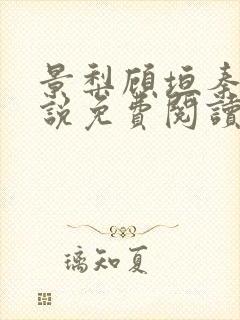 景梨顾垣秦
說免費閱讀
璃知夏